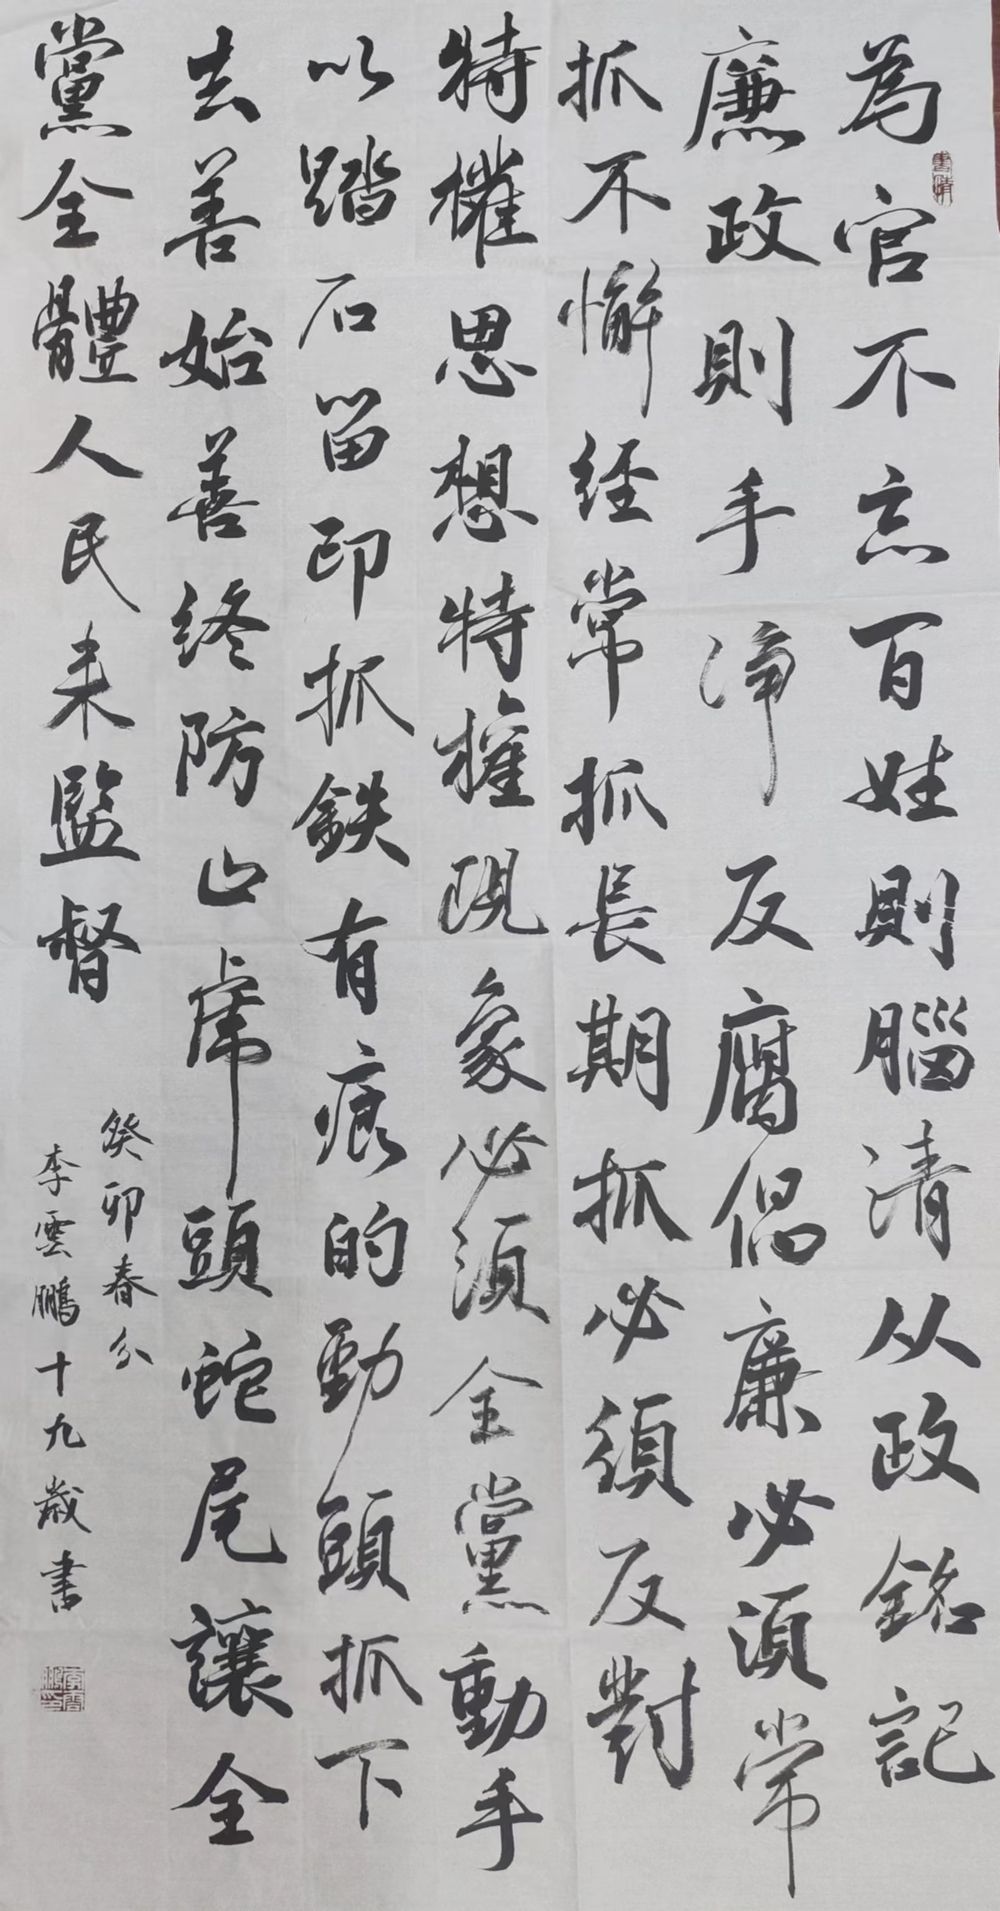 為官不忘百姓則腦清从政銘記
廉政則手淨反腐倡廉必須常
抓不懈经常抓長期抓必須反對
特權思想特權現象必須全黨動手
以踏石留印抓鉄有痕的勁頭抓下
去善始善终防止虎頭蛇尾讓全
黨全體人民来監督
癸卯春分
李雲鵬十九歲書